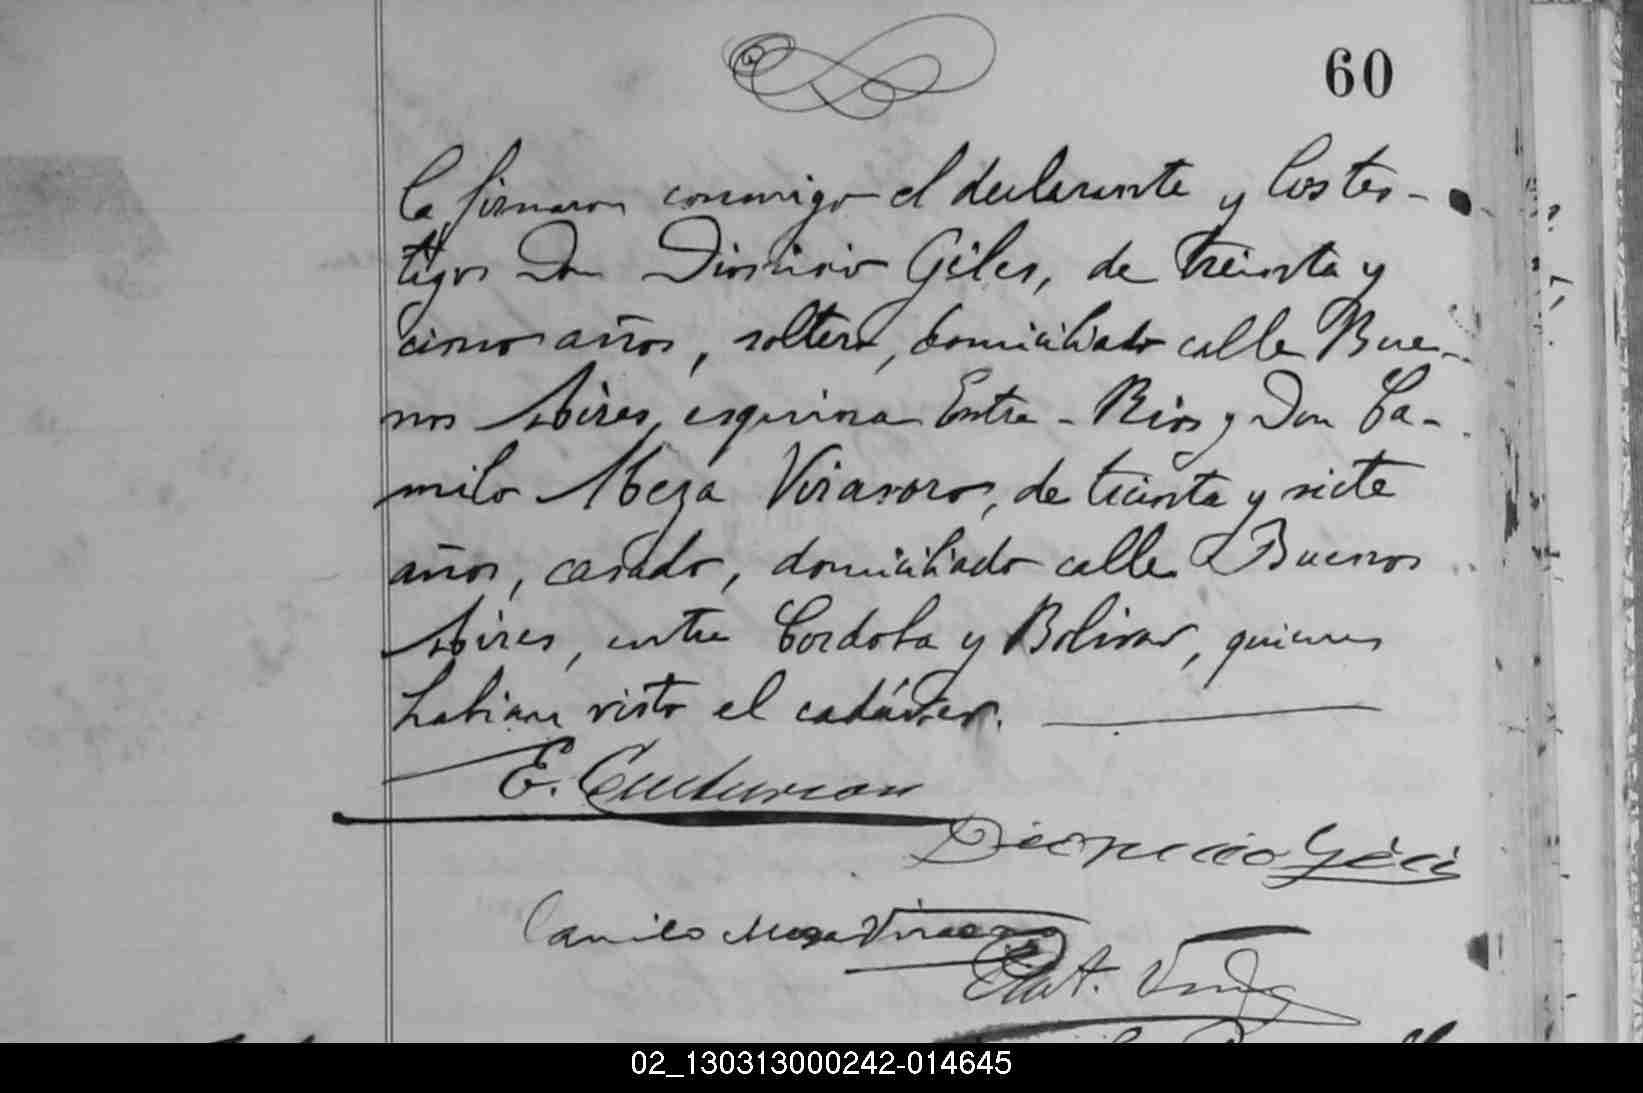 60
la firmaron conmigo el declarante y los tes-
tigos Don Dionicio Giles, de treinta y
cinco años, soltero, domiciliado calle Bue-
nos Aires, esquina Entre-Rios y Don Ca-
milo Meza Virasoro, de treinta y siete
años, casado, domiciliado calle Buenos
Aires, entre Cordoba y Bolivar, quienes
habian visto el cadáver.
E.
Dionicio Giles
Camilo Meza Virasoro
02_130313000242-014645